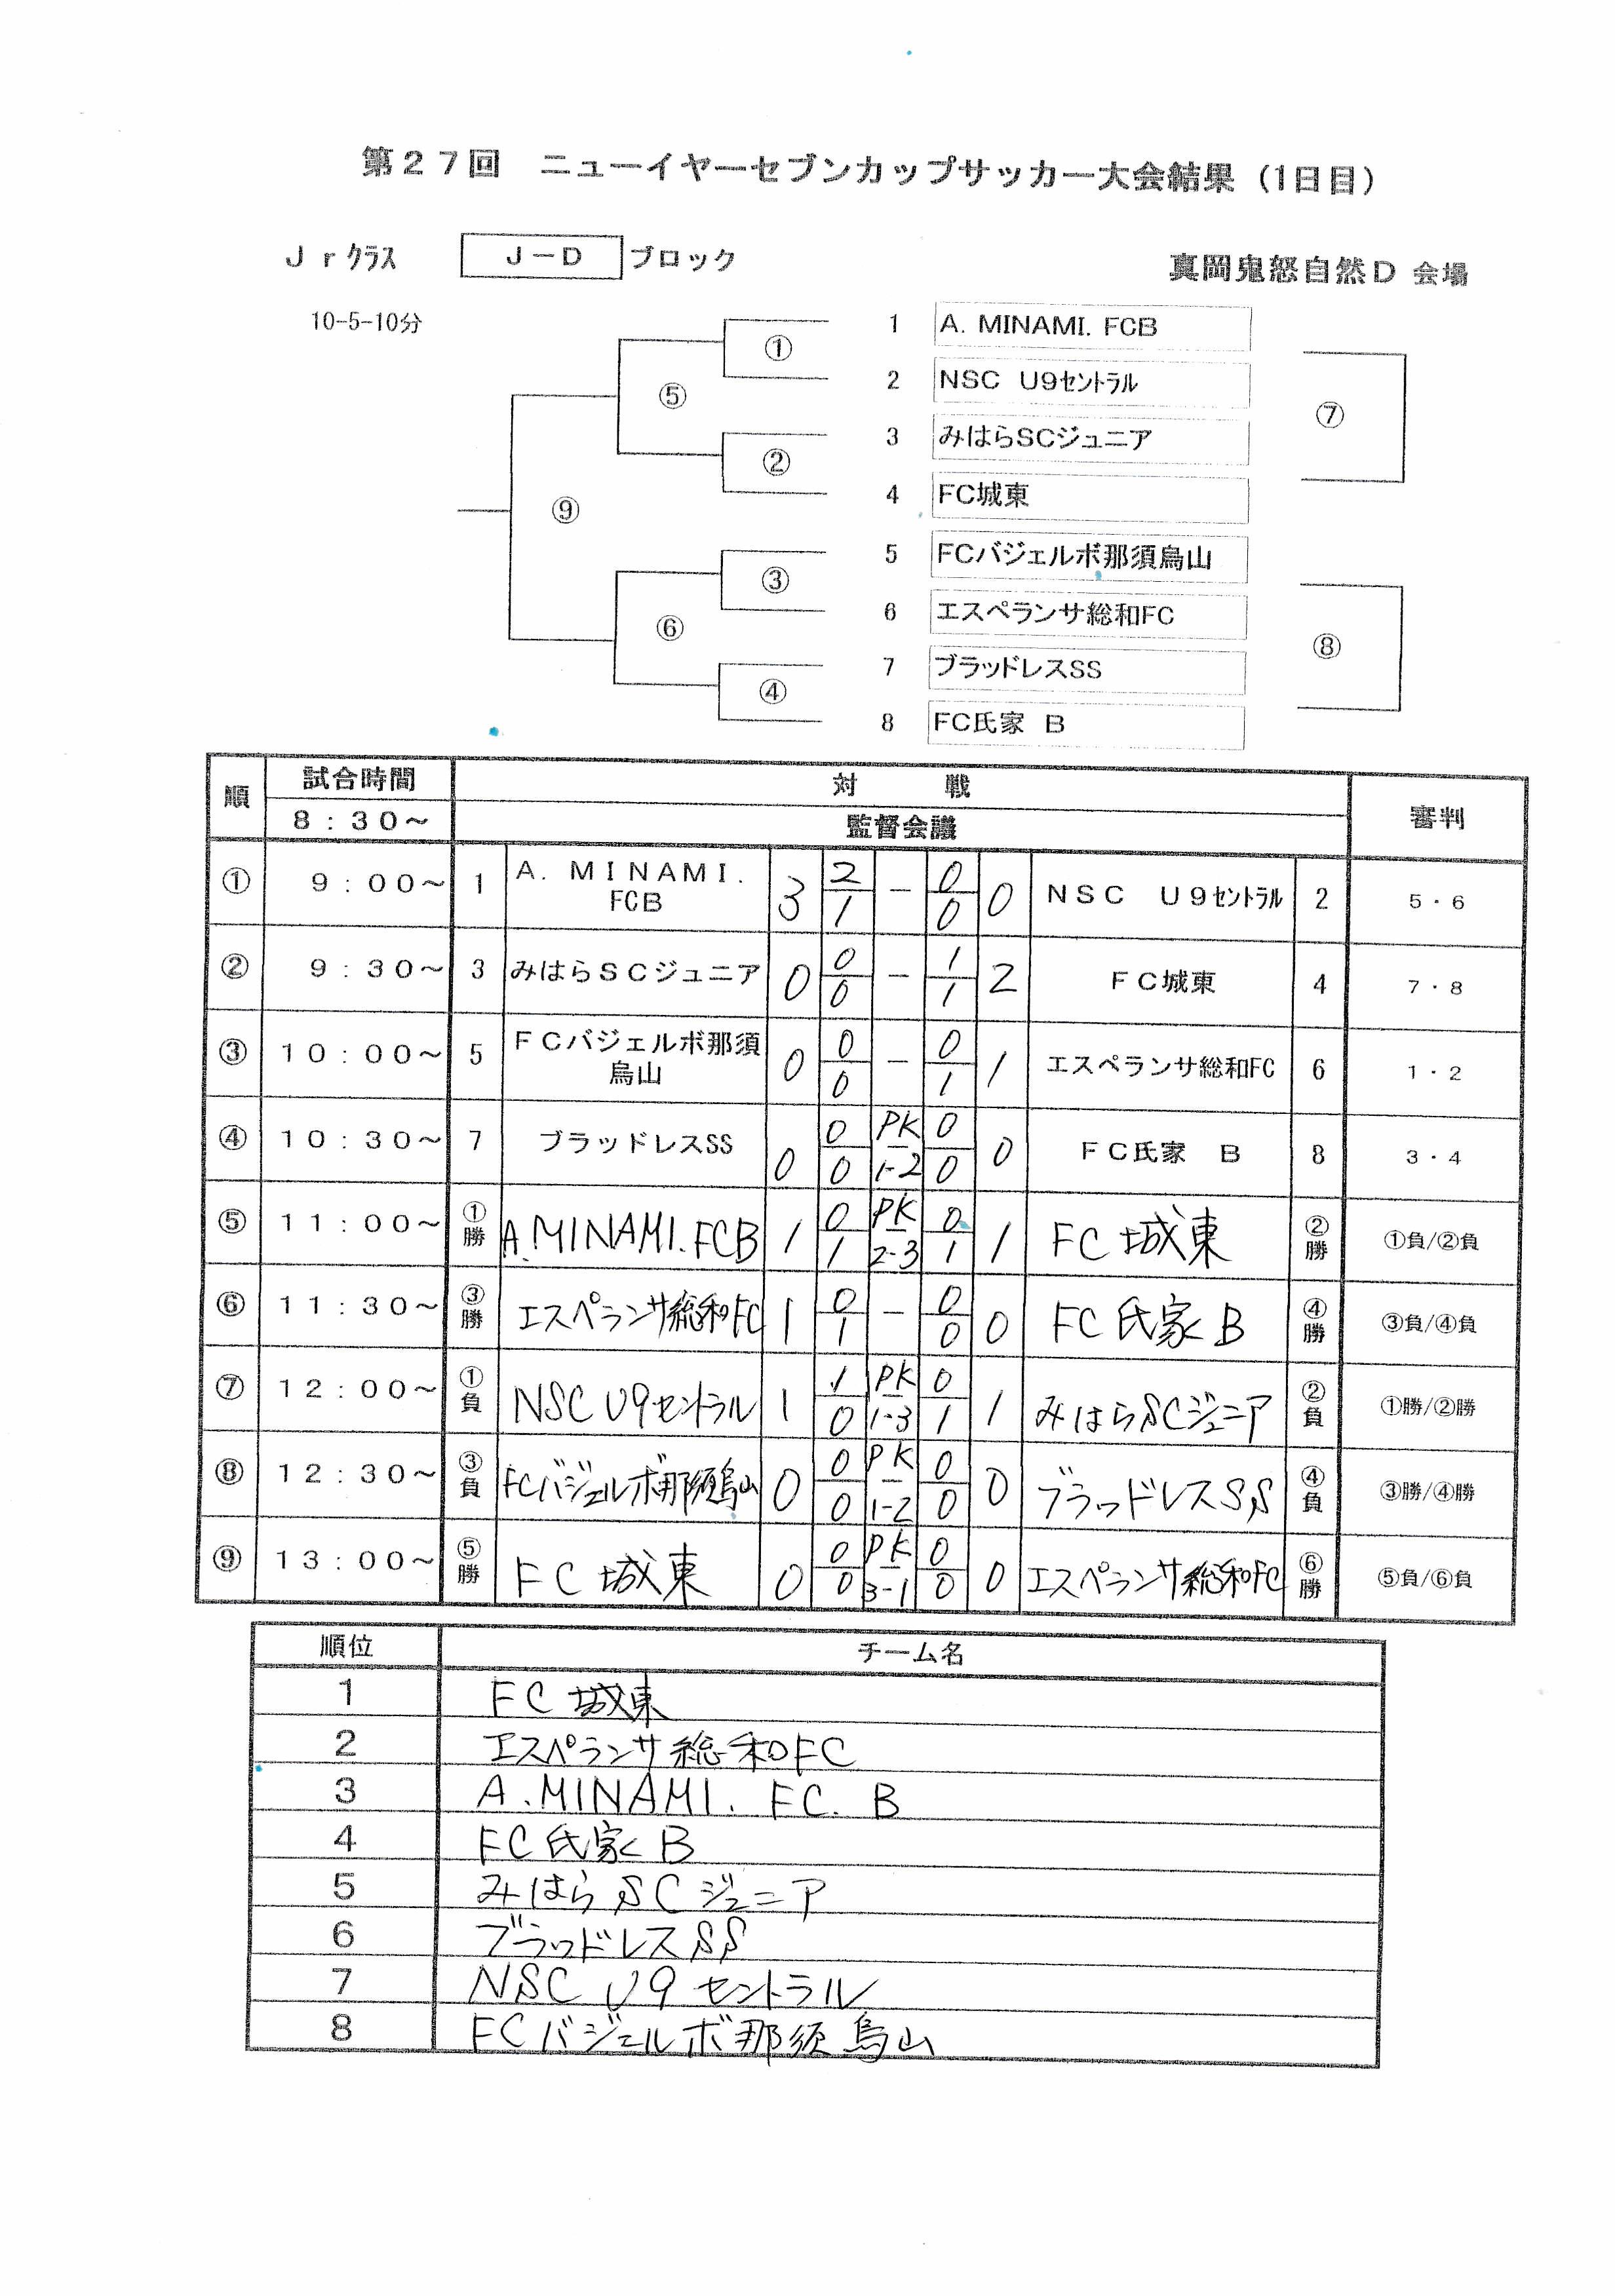 第２７回　ニューイヤーセブンカップサッカー大会結果（1日目）
Ｊｒクラス　Ｊ－Ｄ　ブロック
真岡鬼怒自然Ｄ 会場
10-5-10分
1 A. MINAMI. FCB
①
2 NSC U9セントラル
⑤
⑦
3 みはらSCジュニア
②
4 FC城東
⑨
5 FCバジェルボ那須烏山
③
6 エスペランサ総和FC
⑥
⑧
7 ブラッドレスSS
④
8 FC氏家 B
順 試合時間 対 戦 審判
8：30～ 監督会議
① 9：00～ 1 A. MINAMI. FCB 3 2/1 － 0/0 0 NSC U9セントラル 2 5・6
② 9：30～ 3 みはらSCジュニア 0 0/0 － 1/1 2 FC城東 4 7・8
③ 10：00～ 5 FCバジェルボ那須烏山 0 0/0 － 0/1 1 エスペランサ総和FC 6 1・2
④ 10：30～ 7 ブラッドレスSS 0 0/0 PK 1-2 0/0 0 FC氏家 B 8 3・4
⑤ 11：00～ ①勝 A.MINAMI.FCB 1 0/1 PK 2-3 0/1 1 FC城東 ②勝 ①負/②負
⑥ 11：30～ ③勝 エスペランサ総和FC 1 0/1 － 0/0 0 FC氏家B ④勝 ③負/④負
⑦ 12：00～ ①負 NSC U9セントラル 1 1/0 PK 1-3 0/1 1 みはらSCジュニア ②負 ①勝/②勝
⑧ 12：30～ ③負 FCバジェルボ那須烏山 0 0/0 PK 1-2 0/0 0 ブラッドレスSS ④負 ③勝/④勝
⑨ 13：00～ ⑤勝 FC城東 0 0/0 PK 3-1 0/0 0 エスペランサ総和FC ⑥勝 ⑤負/⑥負
順位 チーム名
1 FC城東
2 エスペランサ総和FC
3 A.MINAMI.FC.B
4 FC氏家B
5 みはらSCジュニア
6 ブラッドレスSS
7 NSC U9セントラル
8 FCバジェルボ那須烏山